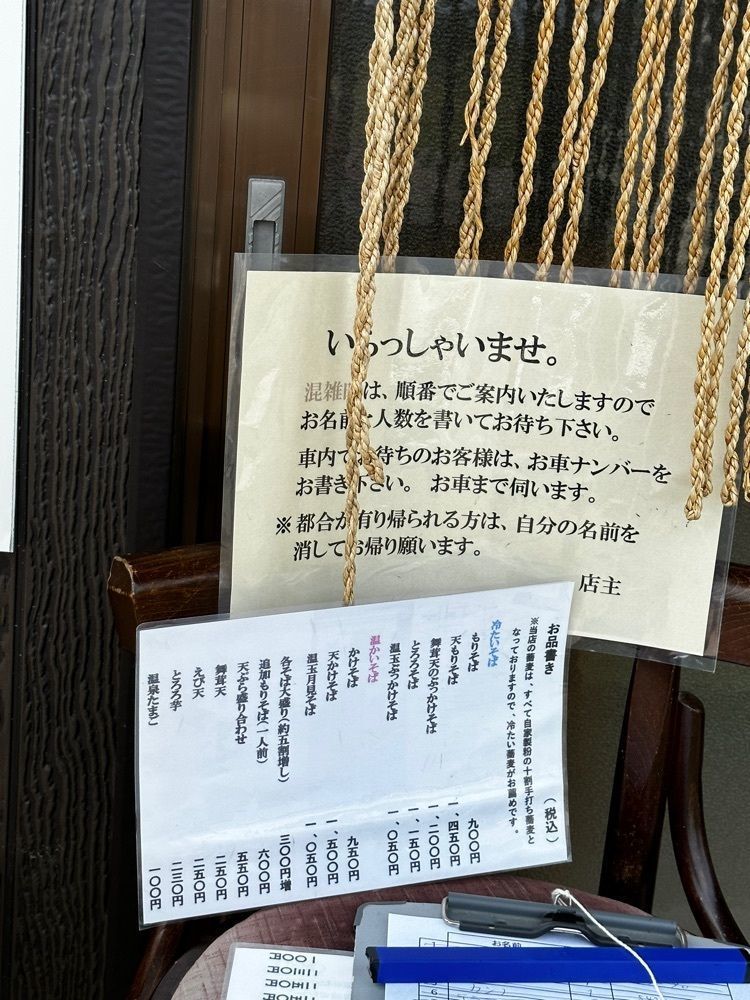 いらっしゃいませ。
混雑時は、順番でご案内いたしますので
お名前と人数を書いてお待ち下さい。
車内でお待ちのお客様は、お車ナンバーを
お書き下さい。 お車まで伺います。
※都合が有り帰られる方は、自分の名前を
消してお帰り願います。
店主
お品書き (税込)
※当店の蕎麦は、すべて自家製粉の十割手打ち蕎麦と
なっておりますので、冷たい蕎麦がお薦めです。
冷たいそば
もりそば 九〇〇円
天もりそば 一、四五〇円
舞茸天のぶっかけそば 一、二〇〇円
とろろそば 一、一五〇円
温玉ぶっかけそば 一、〇五〇円
温かいそば
かけそば 九五〇円
天かけそば 一、五〇〇円
温玉月見そば 一、〇五〇円
各そば大盛り(約五割増し) 三〇〇円増
追加もりそば(一人前) 六〇〇円
天ぷら盛り合わせ 五五〇円
舞茸天 二五〇円
えび天 二五〇円
とろろ芋 二三〇円
温泉たまご 一〇〇円
お名前